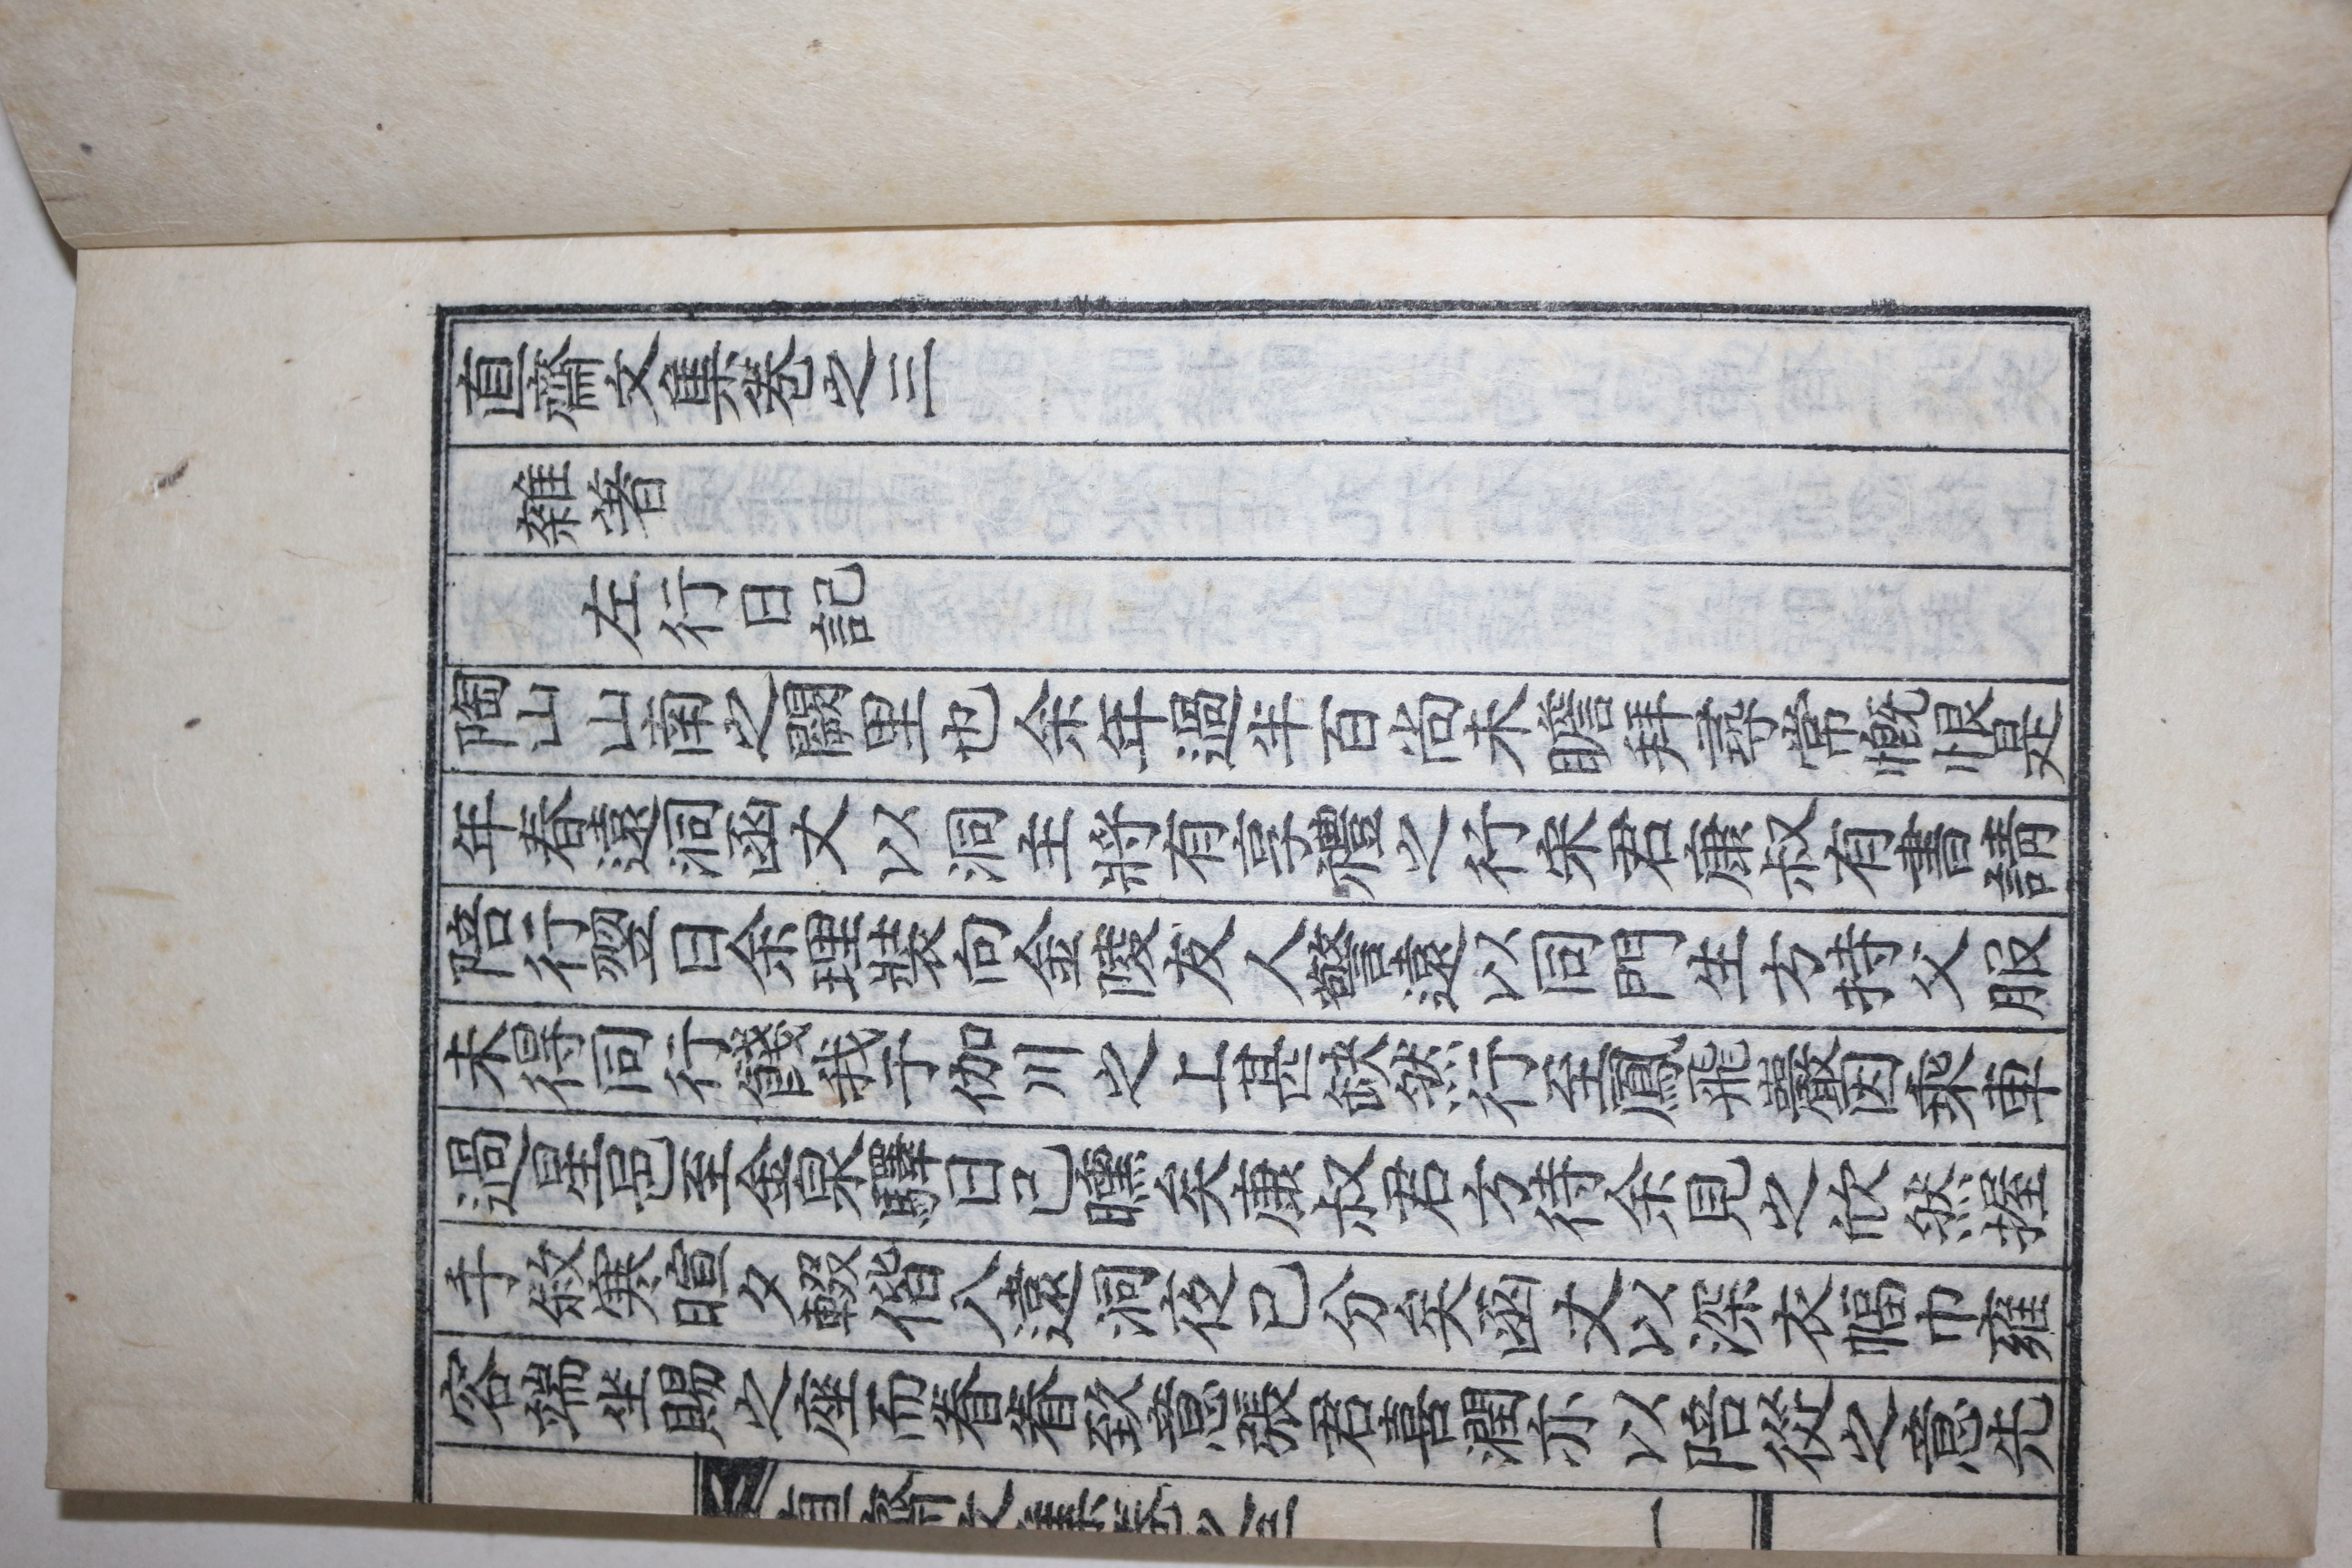 直齋文集卷之三
雜著
左行日記
陶山山南之闕里也余年過半百尚未瞻拜尋常慨恨是
年春遠洞函丈以洞主將有享禮之行宋君康叔有書請
陪行翌日余理裝向金陵友人警遠以同門生方持父服
未得同行餞我于伽川之上甚缺然行至鳳飛巖因乘車
過星邑至金泉驛日已曛矣康叔君方待余見之欣然握
手敍寒暄夕輟偕入遠洞夜已分矣函丈以深衣幅巾雍
容端坐賜之座而眷眷致意張君喜潤亦以陪從之意先
直齋文集卷之三 一